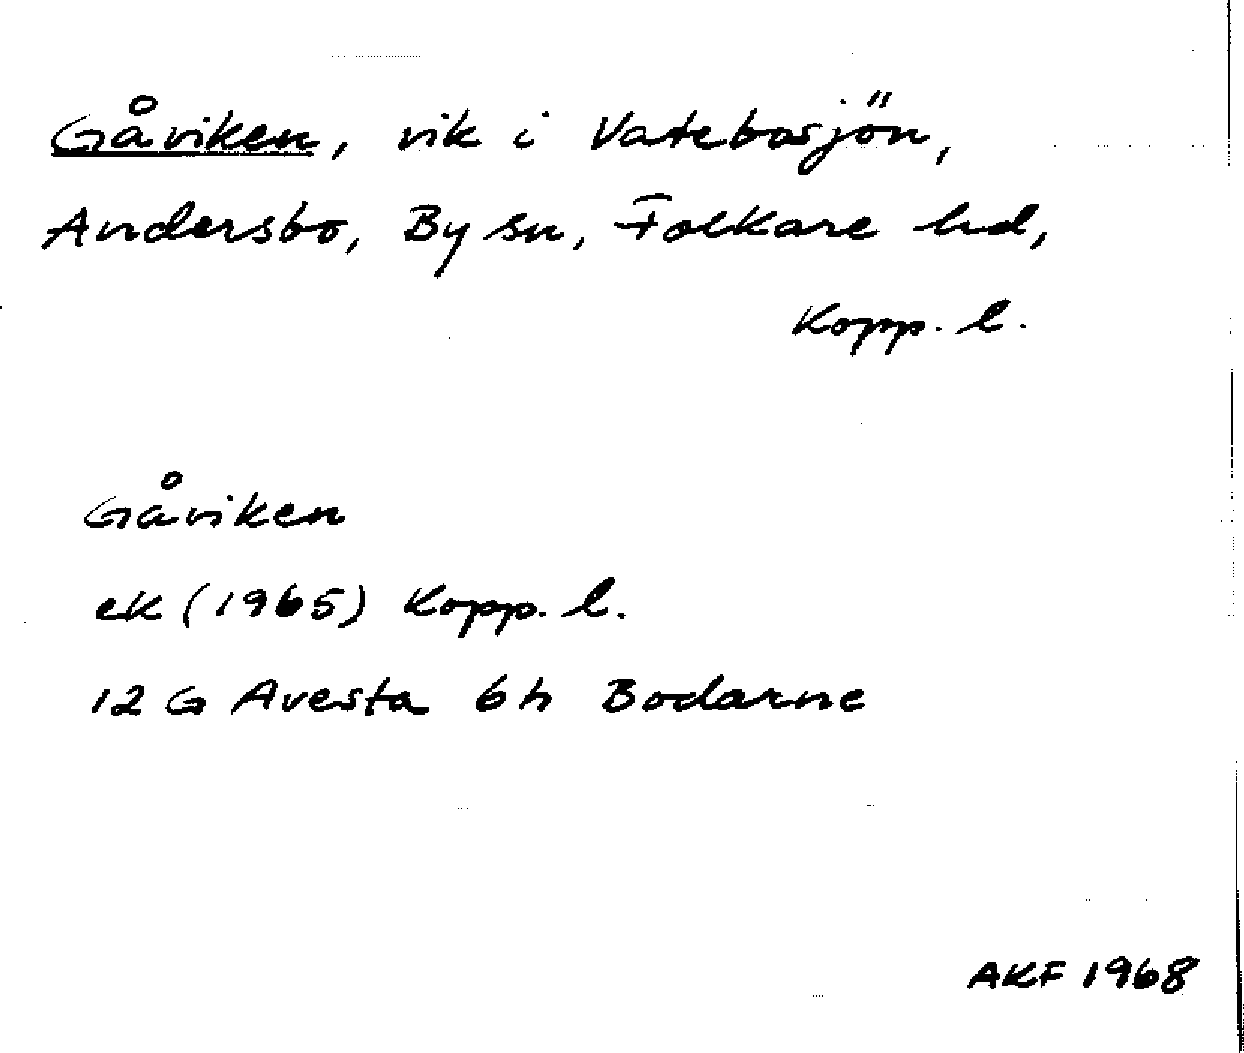 Gåviken, vik i Vatebosjön,
Andersbo, By sn, Folkare hd,
Kopp. l.
Gåviken
ek (1965) Kopp. l.
12 G Avesta 6h Bodarne
AKF 1968